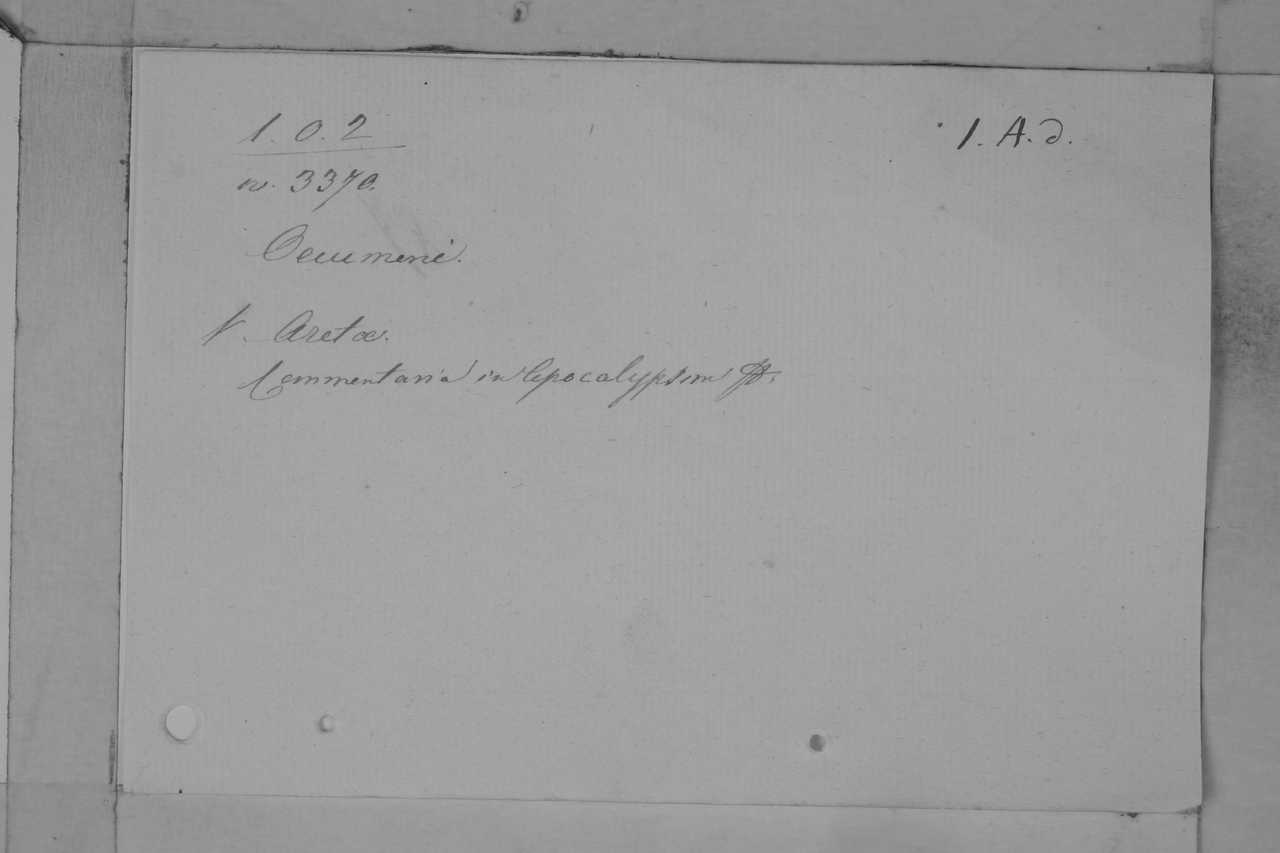 1. O. 2
1. A. d.
n. 3370.
Oecumeni.
v. Aretae.
Commentaria in Apocalypsim